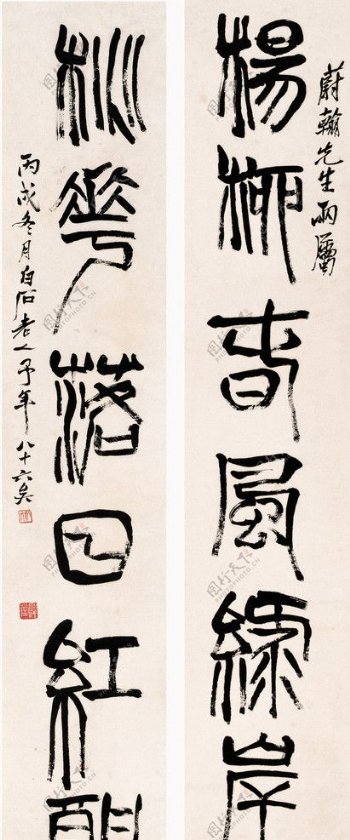 蔚翰先生两属
杨柳春風綠岸
桃花落日紅
丙戌冬月白石老人予年八十六矣